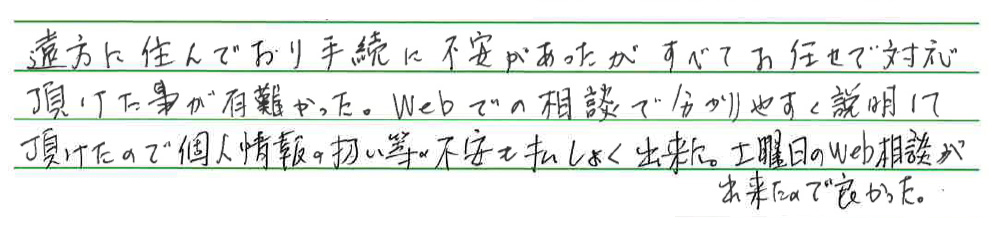 遠方に住んでおり手続に不安があったがすべてお任せで対応
頂けた事が有難かった。Webでの相談で分かりやすく説明して
頂けたので個人情報の扱い等の不安も払しょく出来た。土曜日のWeb相談が
出来たので良かった。